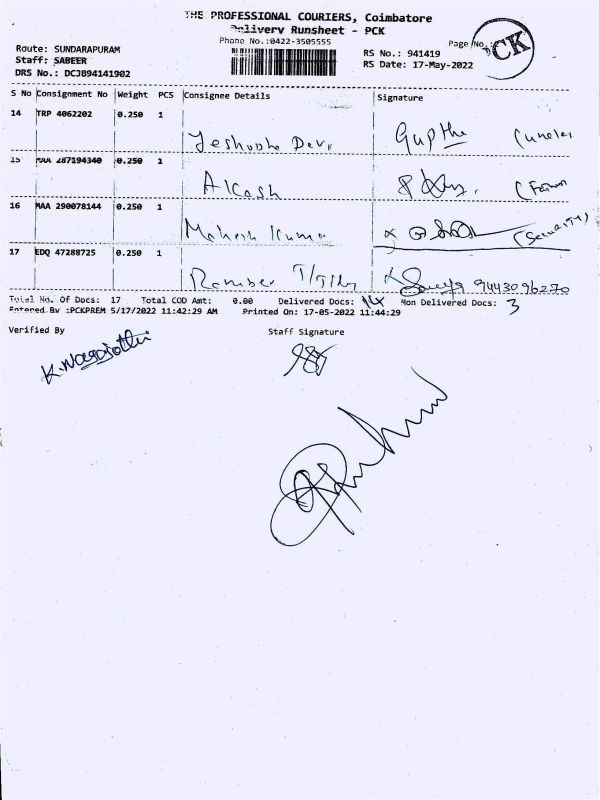 THE PROFESSIONAL COURIERS, Coimbatore
Delivery Runsheet - PCK
Phone No.:0422-3505555
Page No.:
CK
Route: SUNDARAPURAM
Staff: SABEER
DRS No.: DCJ894141902
RS No.: 941419
RS Date: 17-May-2022
S No Consignment No Weight PCS Consignee Details Signature
14 TRP 4062202 0.250 1
Yeshobha Devi Gupthe (uncle)
15 MAA 287194340 0.250 1
Akash
16 MAA 290078144 0.250 1
Mahesh Kumar (Security)
17 EDQ 47288725 0.250 1
9443096270
Total No. Of Docs: 17 Total COD Amt: 0.00 Delivered Docs: 14 Non Delivered Docs: 3
Entered By :PCKPREM 5/17/2022 11:42:29 AM Printed On: 17-05-2022 11:44:29
Verified By Staff Signature
K. Nagajothi